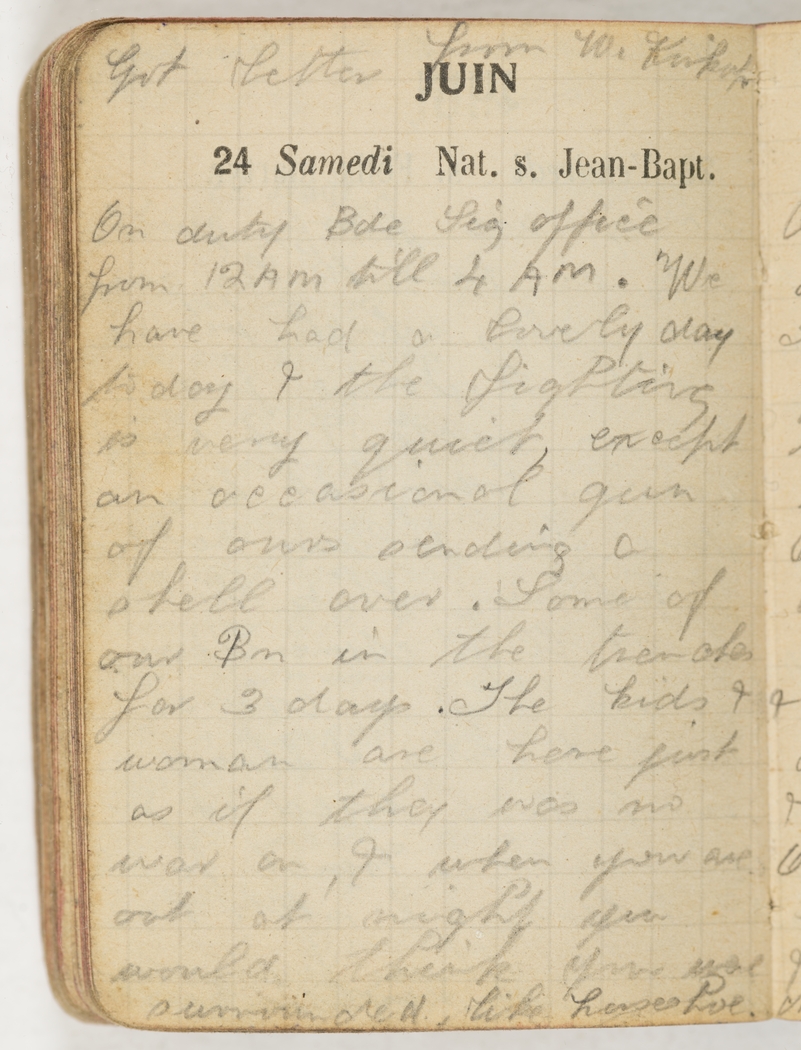 Got letter from W. Kirkpt.
JUIN
24 Samedi Nat. s. Jean-Bapt.
On duty Bde Sig office
from 12 AM till 4 AM. We
have had a lovely day
to day & the fighting
is very quiet, except
an occasional gun
of ours sending a
shell over. Some of
our Bn in the trenches
for 3 days. The kids &
woman are here just
as if they was no
war on, & when you are
out at night you
would think you were
surrounded, like horseshoe.